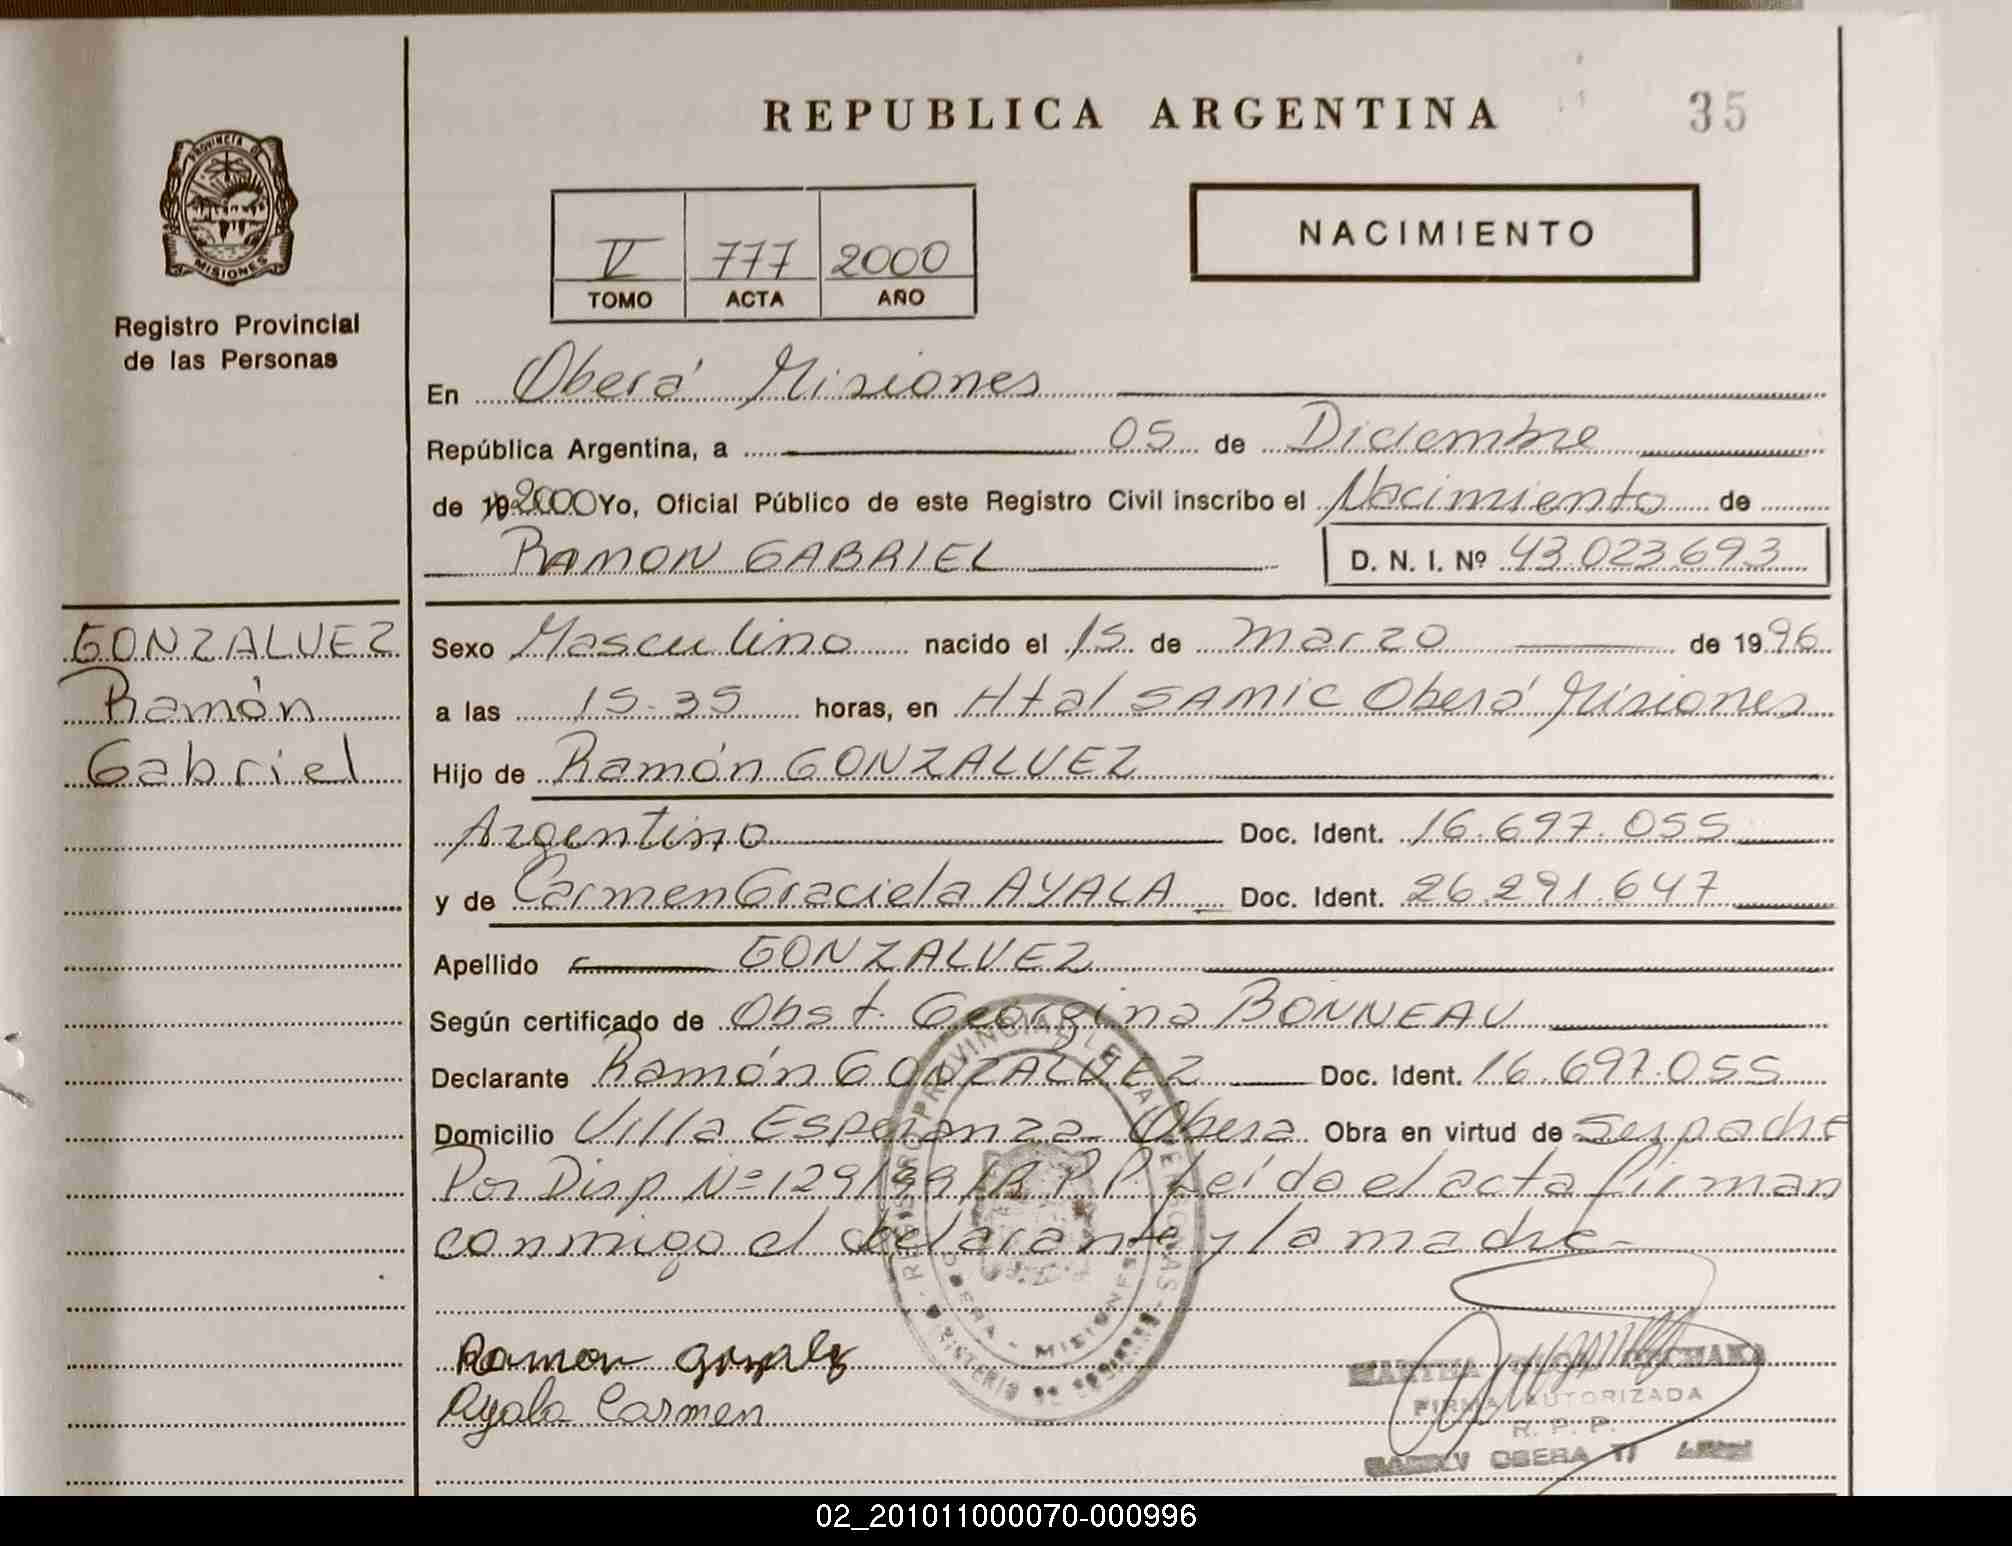 REPUBLICA ARGENTINA
35
PROVINCIA DE
MISIONES
Registro Provincial
de las Personas
V 777 2000
TOMO ACTA AÑO
NACIMIENTO
En Oberá Misiones
República Argentina, a 05 de Diciembre
de 19 2000 Yo, Oficial Público de este Registro Civil inscribo el Nacimiento de
RAMON GABRIEL D. N. I. Nº 43.023.693
GONZALVEZ
Ramón
Gabriel
Sexo Masculino nacido el 15 de marzo de 1996
a las 15.35 horas, en Htal SAMIC Oberá Misiones
Hijo de Ramón GONZALVEZ
Argentino Doc. Ident. 16.697.055
y de Carmen Graciela AYALA Doc. Ident. 26.291.647
Apellido GONZALVEZ
Según certificado de Obst. Georgina BONNEAU
Declarante Ramón GONZALVEZ Doc. Ident. 16.697.055
Domicilio Villa Esperanza Oberá Obra en virtud de Ser padre
Por Disp Nº 129/99/R P P Leído el acta firman
conmigo el declarante y la madre-
REGISTRO PROVINCIAL DE LAS PERSONAS
OBERA - MISIONES
MINISTERIO DE GOBIERNO
Ramon
Ayala Carmen
MARTHA
FIRMA AUTORIZADA
R. P. P.
OBERA
02_201011000070-000996